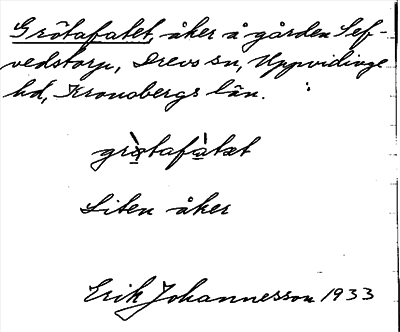 Grötafatet, åker å gården Sef-
vedstorp, Drevs sn, Uppvidinge
hd, Kronobergs län.
grötafàtæt
Liten åker
Erik Johannesson 1933